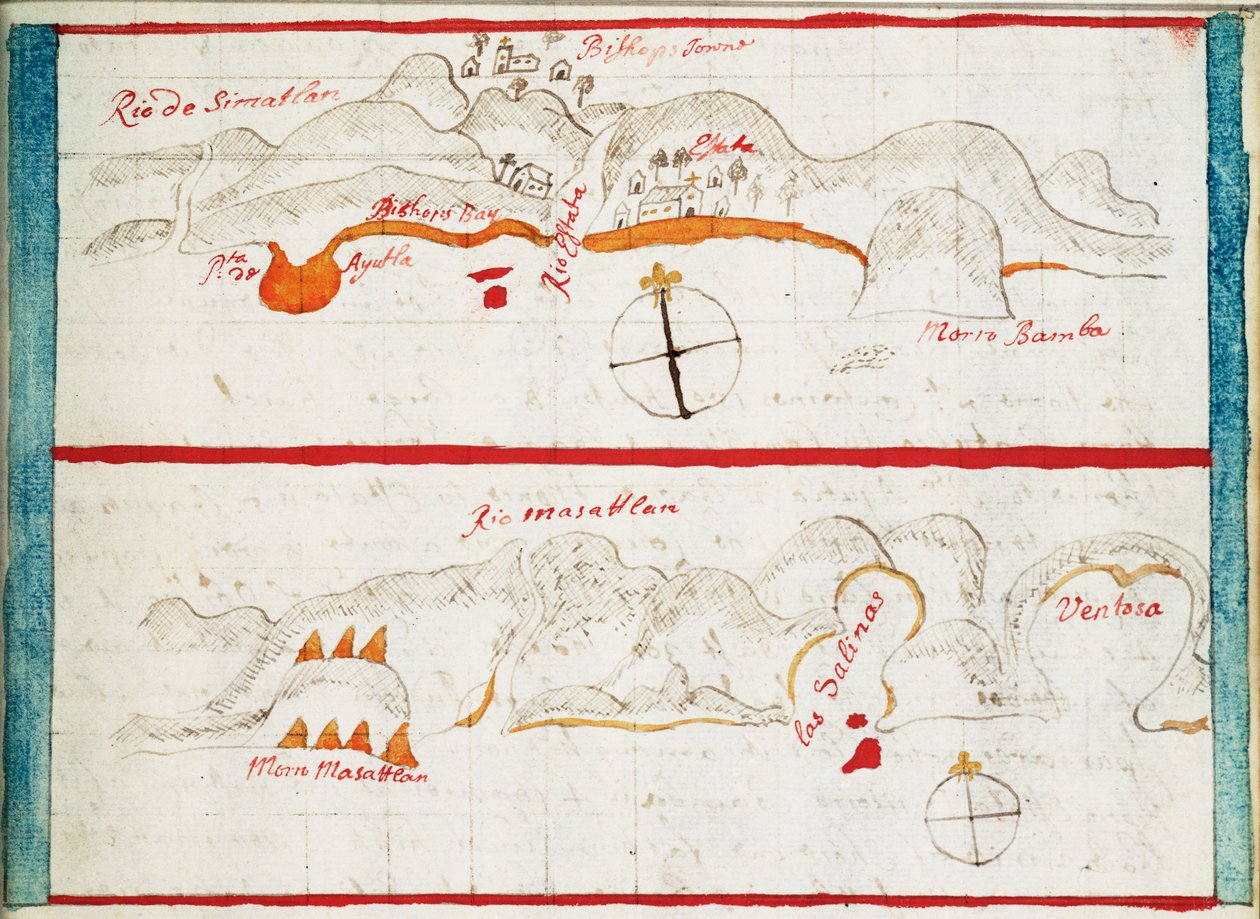 Bishops Towne
Rio de Simatlan
Estata
Bishops Bay
Rio Estata
P.ta de Ayutla
Morro Bamba
Rio masattlan
las Salinas
Ventosa
Morro Masattlan